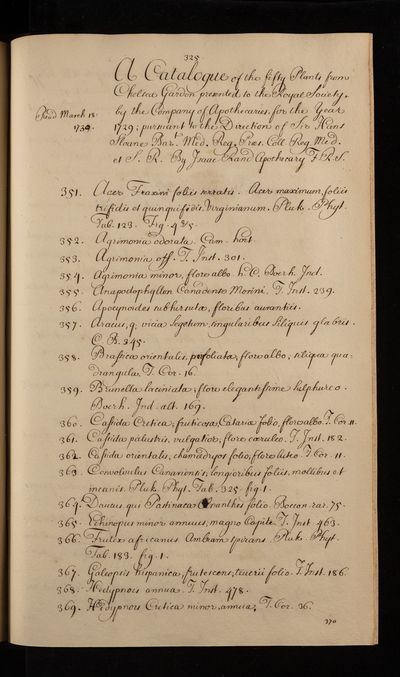 325
A Catalogue of the fifty Plants from
Chelsea Garden presented to the Royal Society,
by the Company of Apothecaries, for the Year
Read March 18
1729; pursuant to the Direction of Sir Hans
Sloane Bar.t Med. Reg. Præs. Coll. Reg. Med.
et S. R. By Isaac Rand Apothecary F. R. S.
351. Acer Fraxini foliis serratis. Acer maximum, foliis
trifidis et quinquifidis, Virginianum. Pluk. Phyt.
Tab. 123. Fig. 4 & 5.
352. Agrimonia odorata. Cam. hort.
353. Agrimonia off. T. Inst. 301.
354. Agrimonia minor, flore albo. h. C. Boerh. Ind.
355. Anapodophyllon Canadense Morini. T. Inst. 239.
356. Apocynoides subhirsuta, floribus aurantiis.
357. Aracus, q; vicia segetum, singularibus siliquis glabris.
C. B. 345.
358. Brassica orientalis, perfoliata, flore albo, siliqua qua=
drangula. T. Cor. 16.
359. Brunella laciniata, flore elegantissime sulphureo.
Boerh. Ind. alt. 169.
360. Cassida Cretica, fruticosa, Catariæ folio, flore albo. T. Cor. 11.
361. Cassida palustris, vulgatior, flore cæruleo. T. Inst. 182.
362. Cassida orientalis, chamædryos folio, flore luteo. T. Cor. 11.
363. Convolvulus Canariensis, longioribus foliis, mollibus et
incanis. Pluk. Phyt. Tab. 325. fig. 1.
364. Daucus, qui Pastinaca Œnanthes folio. Boccon. rar. 75.
365. Echinopus minor annuus, magno Capite. T. Inst. 463.
366. Frutex africanus Ambram spirans. Pluk. Phyt.
Tab. 183. fig. 1.
367. Galeopsis hispanica, frutescens, teucrii folio. T. Inst. 186.
368. Hedypnois annua. T. Inst. 478.
369. Hedypnois Cretica minor, annua, T. Cor. 36.
370